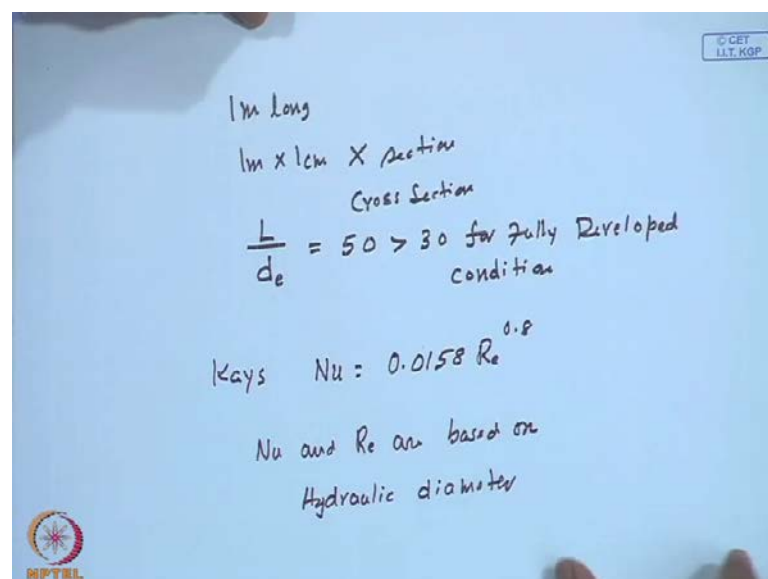 © CET
I.I.T. KGP
1m long
1m x 1cm X section
Cross Section
L
d_e = 50 > 30 for Fully Developed
condition
Kays Nu = 0.0158 Re^0.8
Nu and Re are based on
Hydraulic diameter
NPTEL